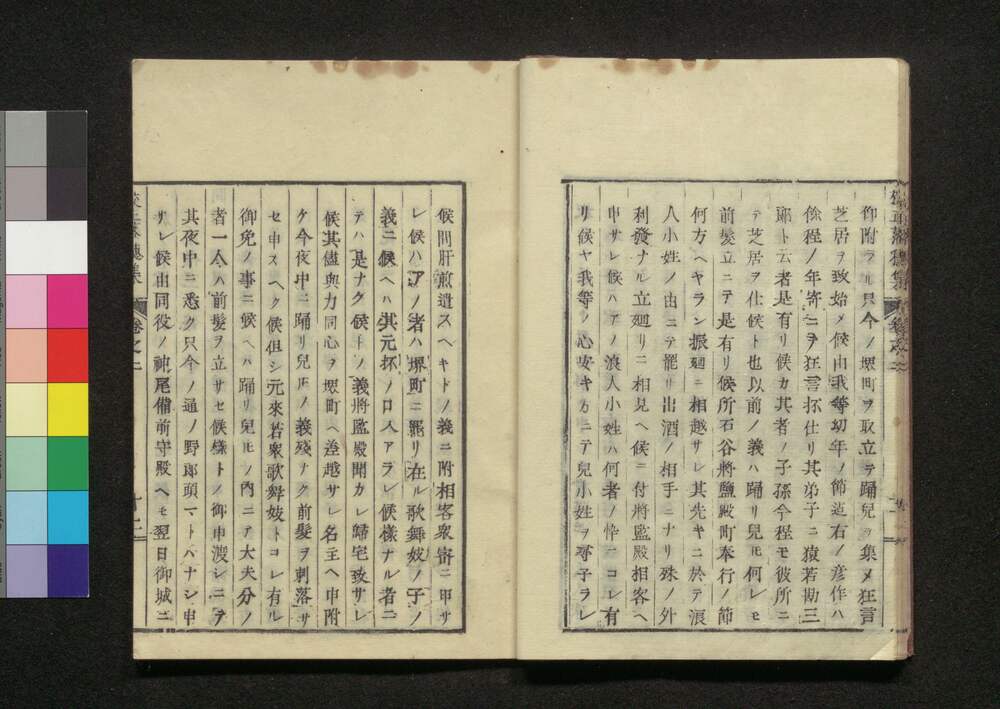 御附ラル只今ノ堺町ヲ取立テ踊兒ヲ集メ狂言
芝居ヲ致始メ候由我等幼年ノ節迄右ノ彦作ハ
餘程ノ年寄ニテ狂言抔仕リ其弟子ニ猿若勘三
郎ト云者是有リ候カ其者ノ子孫今程モ彼所ニ
テ芝居ヲ仕候ト也以前ノ義ハ踊リ兒㐧何レモ
前髮立ニテ是有リ候所石谷將監殿町奉行ノ節
何方ヘヤラン振廻ニ相越サレ其先キニ於テ浪
人小姓ノ由ニテ罷リ出酒ノ相手ニナリ殊ノ外
利發ナル立廻リニ相見ヘ候ニ付將監殿相客ヘ
申サレ候ハアノ浪人小姓ハ何者ノ忰ニコレ有
リ候ヤ我等ノ心安キカニテ兒小姓ヲ尋子ラレ
候間肝煎遣スヘキトノ義ニ附相客衆寄ニ申サ
レ候ハアノ者ハ堺町ニ罷リ在ル歌舞妓ノ子ノ
義ニ候ヘハ其元抔ノ口入アラレ候樣ナル者ニ
テハ是ナク候トノ義將監殿聞カレ歸宅致サレ
候其儘與力同心ヲ堺町ヘ差越サレ名主ヘ申附
ケ今夜中ニ踊リ兒㐧ノ義殘ナク前髮ヲ剃落サ
セ申スヘク候但シ元來若衆歌舞妓トコレ有ル
御免ノ事ニ候ヘハ踊リ兒㐧ノ內ニア大夫分ノ
者一人ハ前髮ヲ立サセ候樣トノ御申渡シニテ
其夜中ニ悉ク只今ノ通ノ野郎頭マトハナシ申
サレ候由同役ノ神尾備前守殿ヘモ翌日御城ニ
卷之二